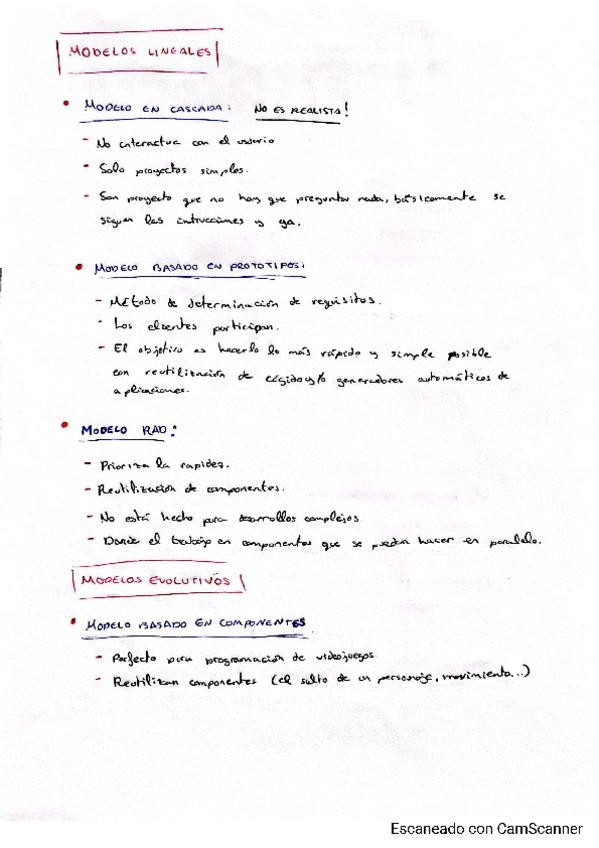 MODELOS LINEALES
• MODELO EN CASCADA: NO ES REALISTA!
- No interactua con el usuario.
- Solo proyectos simples.
- Son proyecto que no hay que preguntar nada, básicamente se
siguen las intrucciones y ya.
• MODELO BASADO EN PROTOTIPOS:
- Método de determinación de requisitos.
- Los clientes participan.
- El objetivo es hacerlo lo más rápido y simple posible
con reutilización de código y/o generadores automáticos de
aplicaciones.
• MODELO RAD:
- Prioriza la rapidez.
- Reutilización de componentes.
- No está hecho para desarrollos complejos.
- Divide el trabajo en componentes que se puedan hacer en paralelo.
MODELOS EVOLUTIVOS
• MODELO BASADO EN COMPONENTES
- Perfecto para programación de videojuegos.
- Reutilizan componentes (el salto de un personaje, movimiento...)
Escaneado con CamScanner